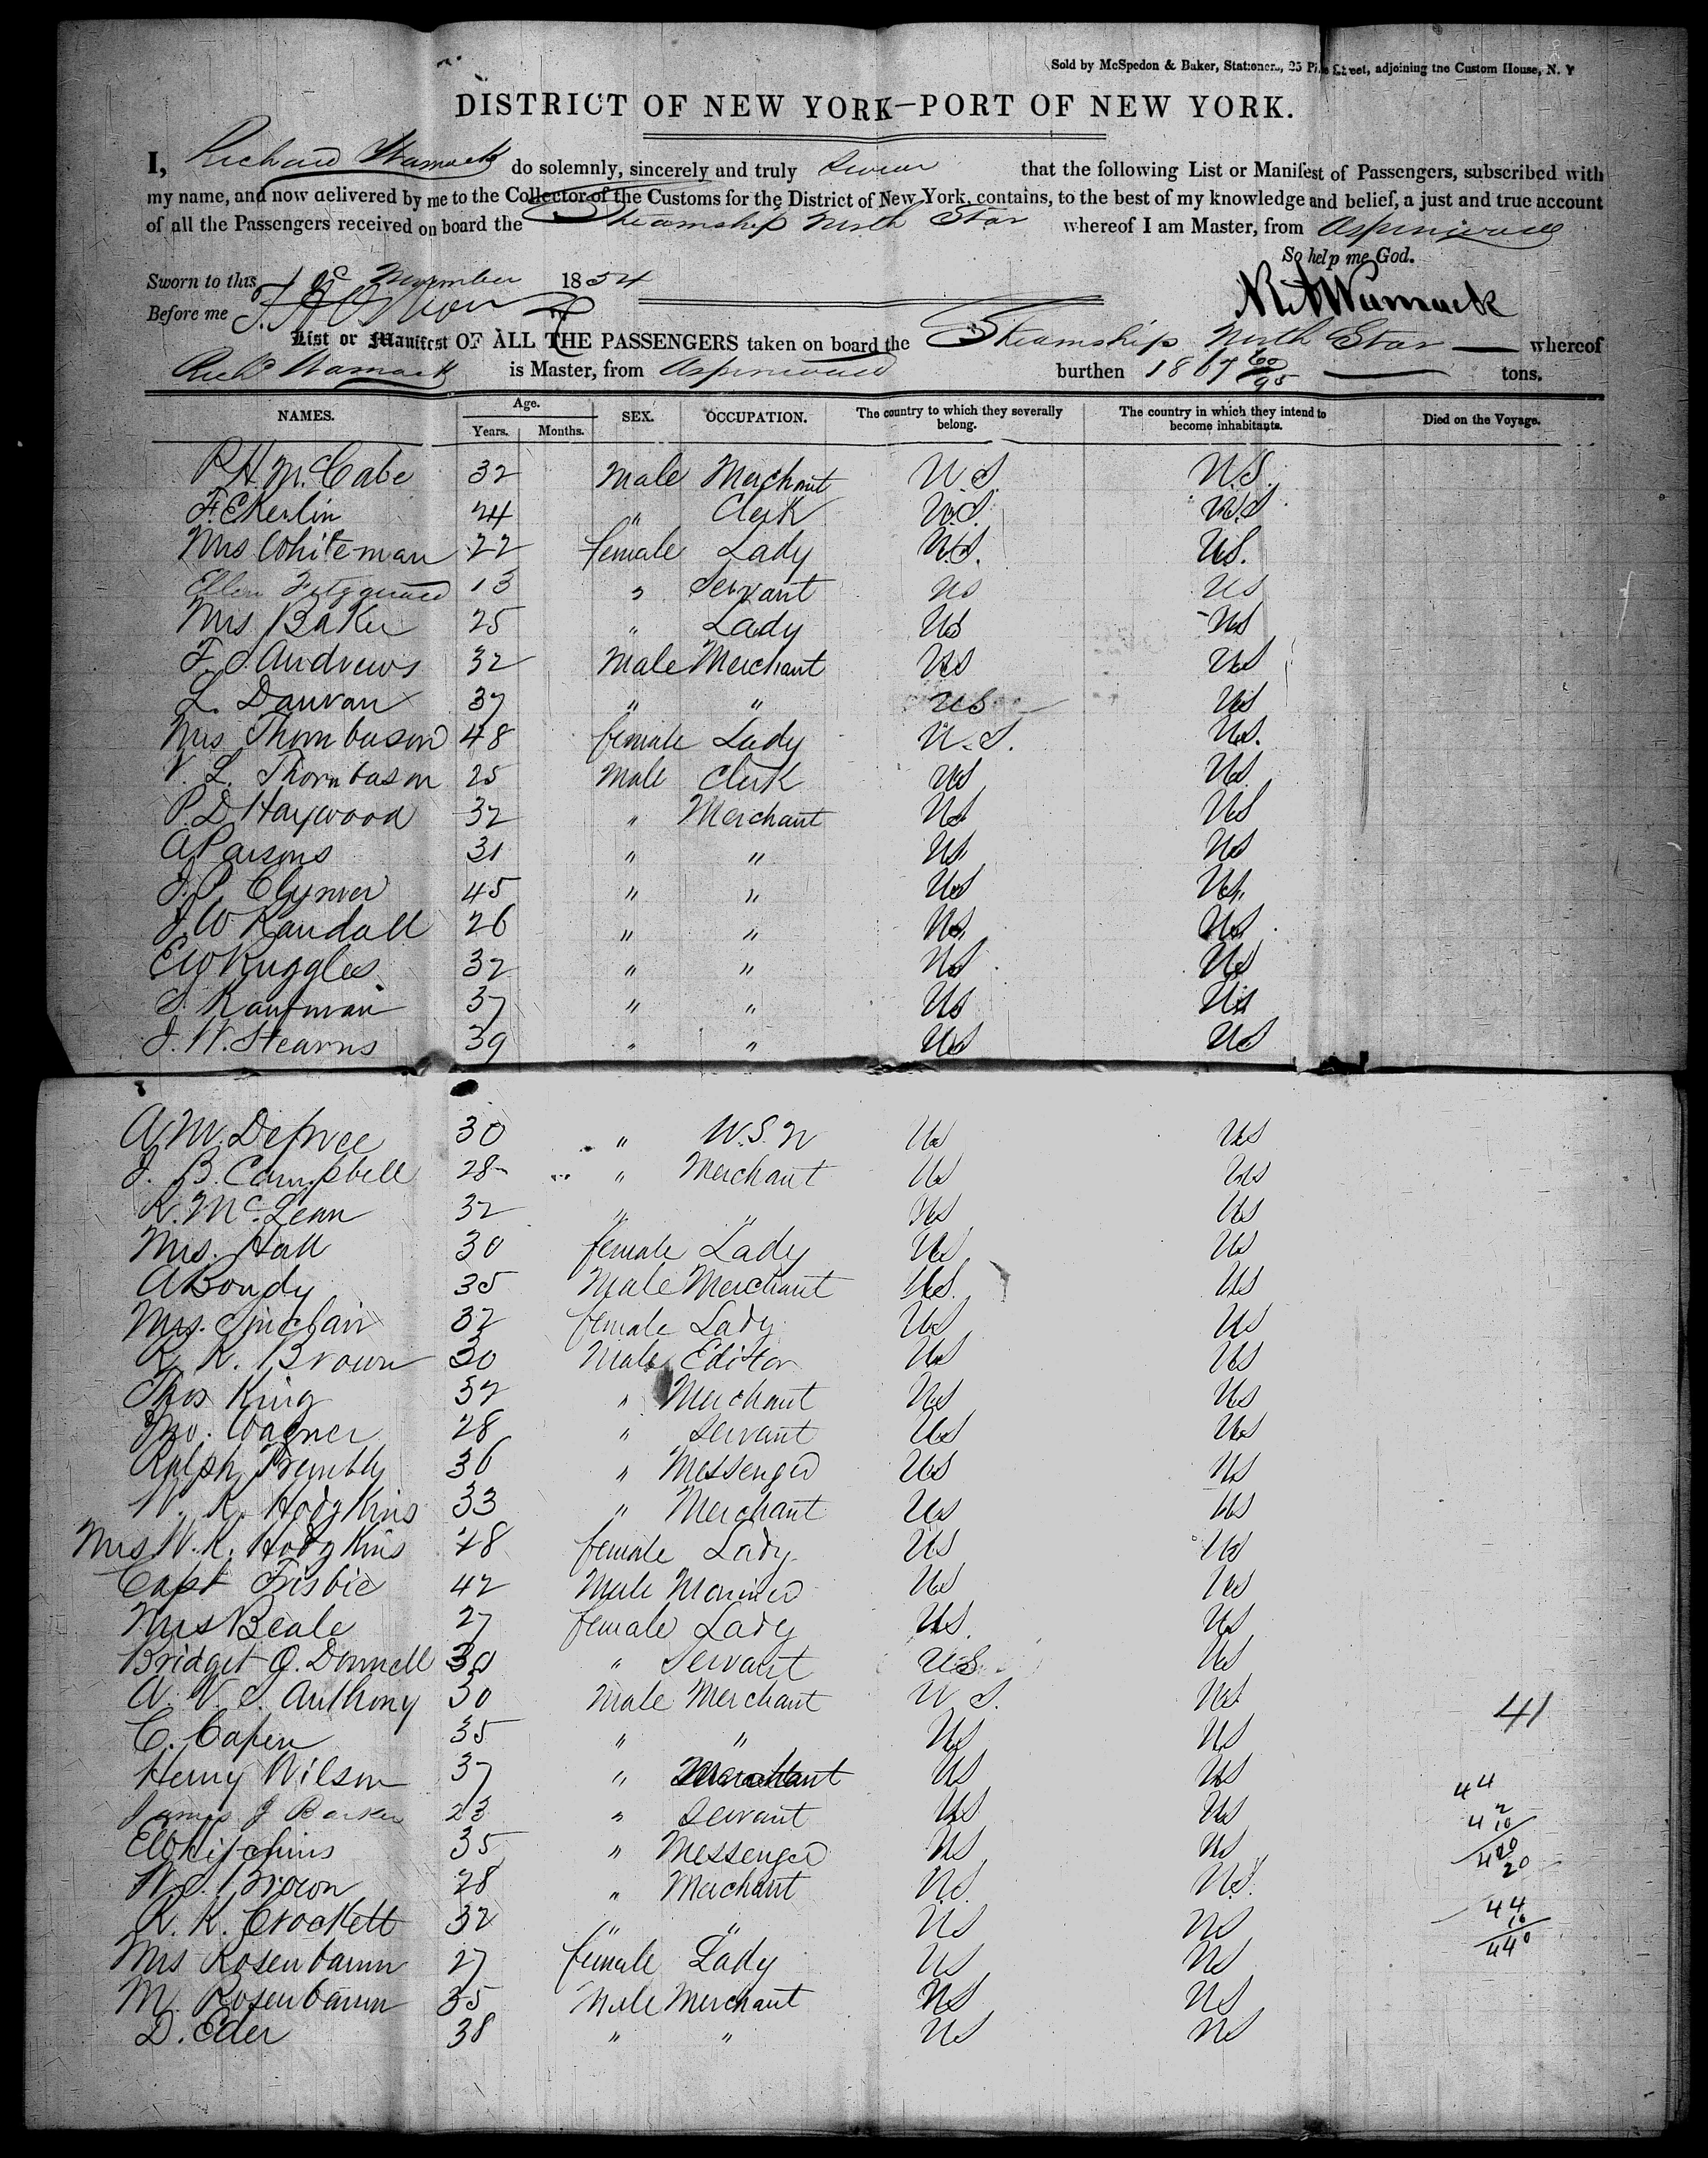 Sold by McSpedon & Baker, Stationers, 25 Pine Street, adjoining the Custom House, N. Y
DISTRICT OF NEW YORK—PORT OF NEW YORK.
I, Richard Wamack do solemnly, sincerely and truly swear that the following List or Manifest of Passengers, subscribed with
my name, and now delivered by me to the Collector of the Customs for the District of New York, contains, to the best of my knowledge and belief, a just and true account
of all the Passengers received on board the Steamship North Star whereof I am Master, from Aspinwall
So help me God.
Sworn to this November 1854
Before me
R A Wamack
List or Manifest OF ALL THE PASSENGERS taken on board the Steamship North Star — whereof
Richd Wamack is Master, from Aspinwall burthen 1867 60/95 — tons.
NAMES. Age. Years. Months. SEX. OCCUPATION. The country to which they severally belong. The country in which they intend to become inhabitants. Died on the Voyage.
P. H. McCabe 32 Male Merchant U S U.S.
F. E Kerlin 24 " Clerk U.S. U.S.
Mrs Whiteman 22 female Lady U.S. U.S.
Ellen 13 " Servant US US
Mrs Baker 25 " Lady US US
F. S. Andrews 32 Male Merchant US US
L. Dauvan 37 " " US US
Mrs Thornbason 48 female Lady U.S. U.S.
V. L. Thornbason 25 Male Clerk US US
P. D. Haywood 32 " Merchant US US
A Parsons 31 " " US US
J. P. Clymer 45 " " US US
J. W Randall 26 " " US US
E W Ruggles 32 " " US US
S. Kaufman 37 " " US US
J. W. Stearns 39 " " US US
A. M. Defree 30 " U.S. N US US
J. B. Campbell 28 " Merchant US US
R. McLean 32 " " US US
Mrs. Hall 30 female Lady US US
A Bondy 35 Male Merchant US US
Mrs. Sinclair 32 female Lady US US
R. K. Brown 30 Male Editor US US
Thos King 32 " Merchant US US
Jno. Wagner 28 " Servant US US
Ralph Trembly 36 " Messenger US US
W. K. Hodgkins 33 " Merchant US US
Mrs W. K. Hodgkins 28 female Lady US US
Capt Frisbie 42 Male Mariner US US
Mrs Beale 27 female Lady US US
Bridget O. Donnell 30 " Servant US US
A. V. S. Anthony 30 Male Merchant U S. US
41
C. Capen 35 " " US US
Henry Wilson 37 " Merchant US US
44
James J Barker 23 " Servant US US
E W 35 " Messenger US US
W. S. Brown 28 " Merchant U.S. U.S.
R. K. Crockett 32 " " US US
44
10
440
Mrs Rosenbaum 27 female Lady US US
M. Rosenbaum 35 Male Merchant US US
D. Eder 38 " " US US